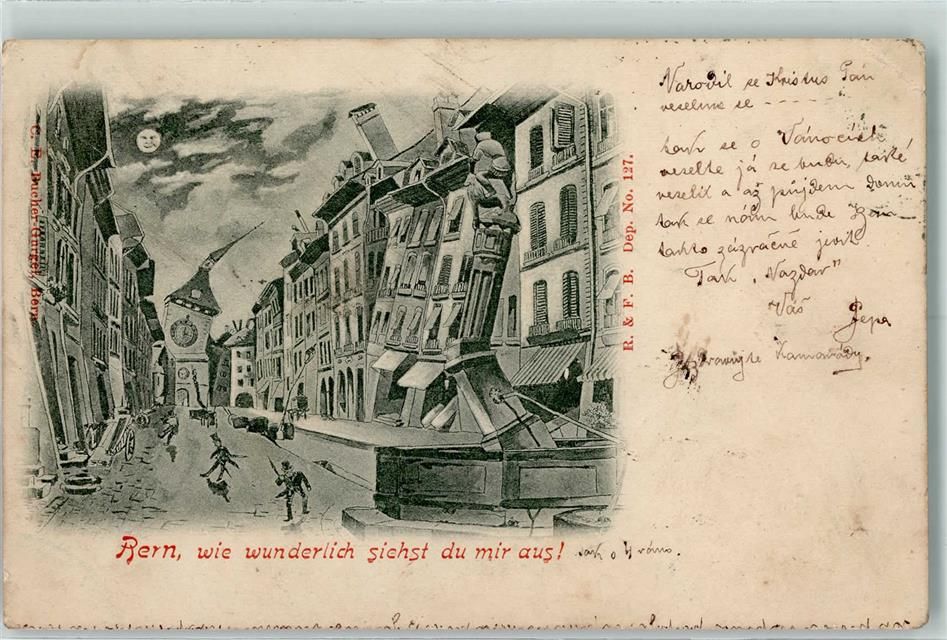 Narodil se Kristus Pán
veselme se - - - -
tak se o Vánocích
veselte já se budu také
veselit a až půjdem domů
tak se nám bude
takto zázračně jevit.
Tak „Nazdar"
Váš
Pepa
Pozdravujte kamarády.
C. E. Bucher-Guigel, Bern
R. & F. B. Dep. No. 127.
Bern, wie wunderlich siehst du mir aus! tak o 4 ráno.